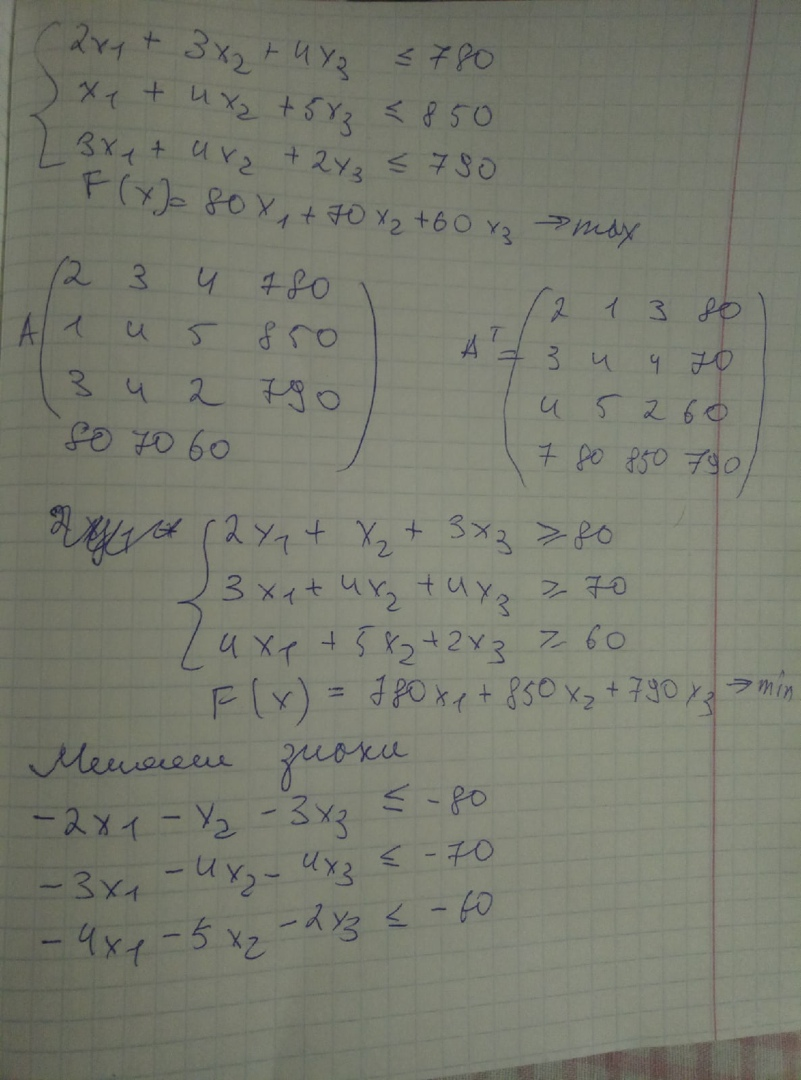 2x1 + 3x2 + 4x3 ≤ 780
x1 + 4x2 + 5x3 ≤ 850
3x1 + 4x2 + 2x3 ≤ 790
F(x) = 80x1 + 70x2 + 60x3 → max
A 2 3 4 780
1 4 5 850
3 4 2 790
80 70 60
A^T = 2 1 3 80
3 4 4 70
4 5 2 60
780 850 790
2x1 + x2 + 3x3 ≥ 80
3x1 + 4x2 + 4x3 ≥ 70
4x1 + 5x2 + 2x3 ≥ 60
F(x) = 780x1 + 850x2 + 790x3 → min
Меняем знаки
-2x1 - x2 - 3x3 ≤ -80
-3x1 - 4x2 - 4x3 ≤ -70
-4x1 - 5x2 - 2x3 ≤ -60